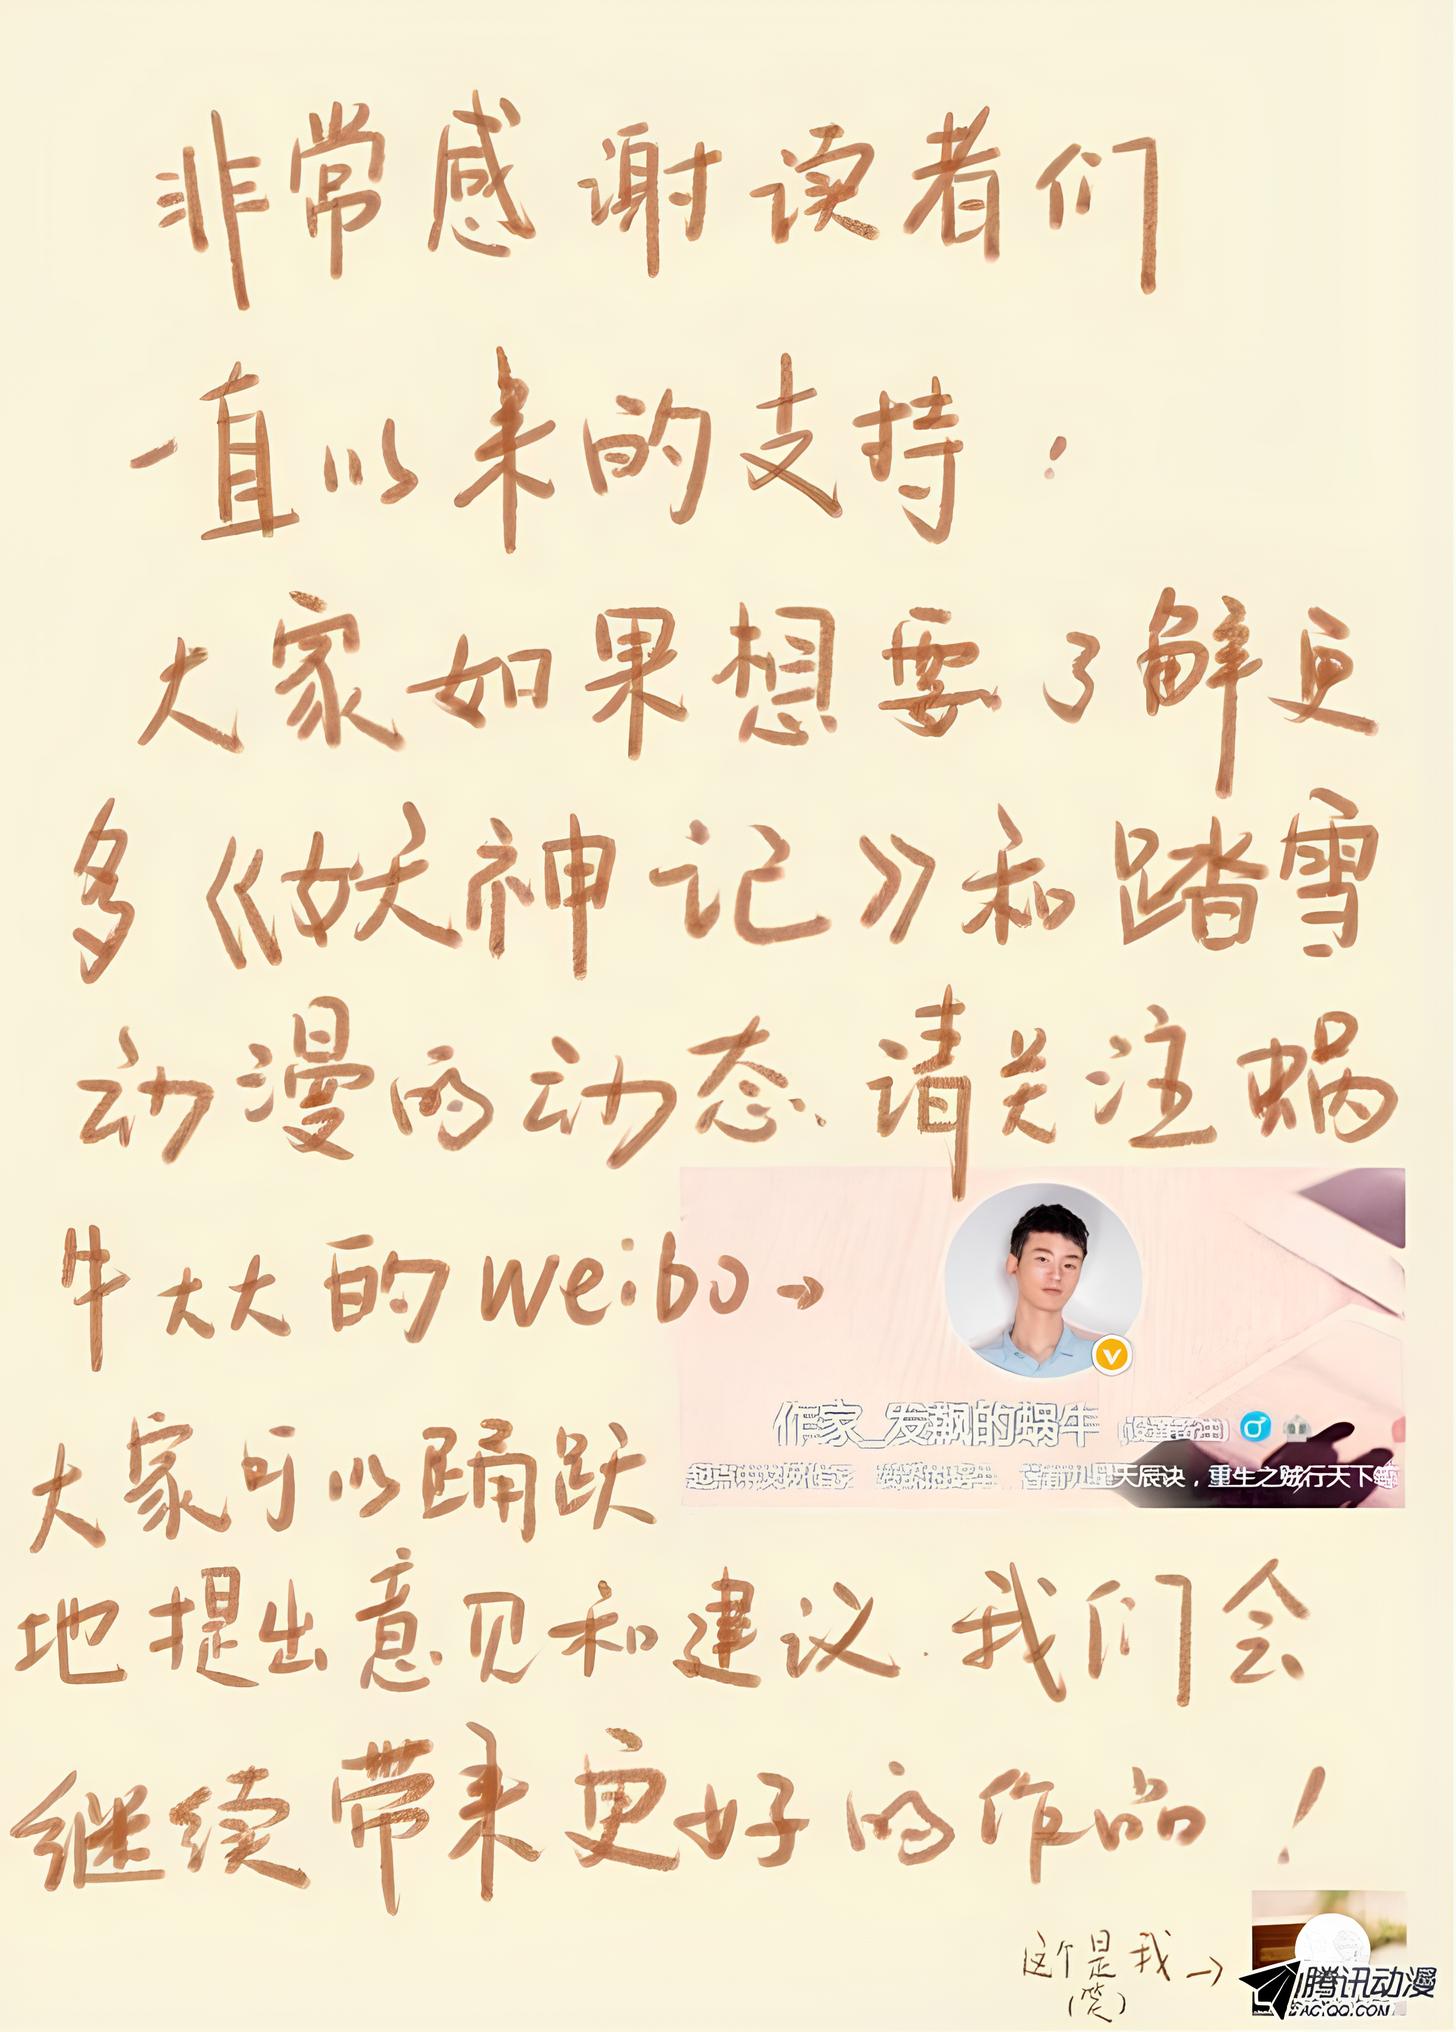 非常感谢读者们
一直以来的支持！
大家如果想要了解更
多《妖神记》和踏雪
动漫的动态、请关注蜗
牛大大的weibo→
作家_发飙的蜗牛
天辰诀，重生之贼行天下
大家可以踊跃
地提出意见和建议.我们会
继续带来更好的作品！
这个是我→
(笑)
腾讯动漫
AC.QQ.COM